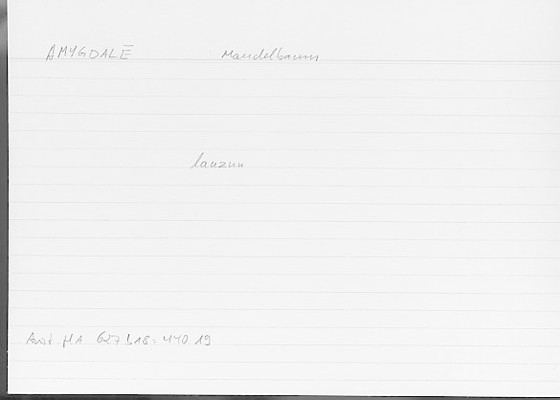 AMYGDALĒ Mandelbaum
lauzun
Arist HA 627b18: 440.19